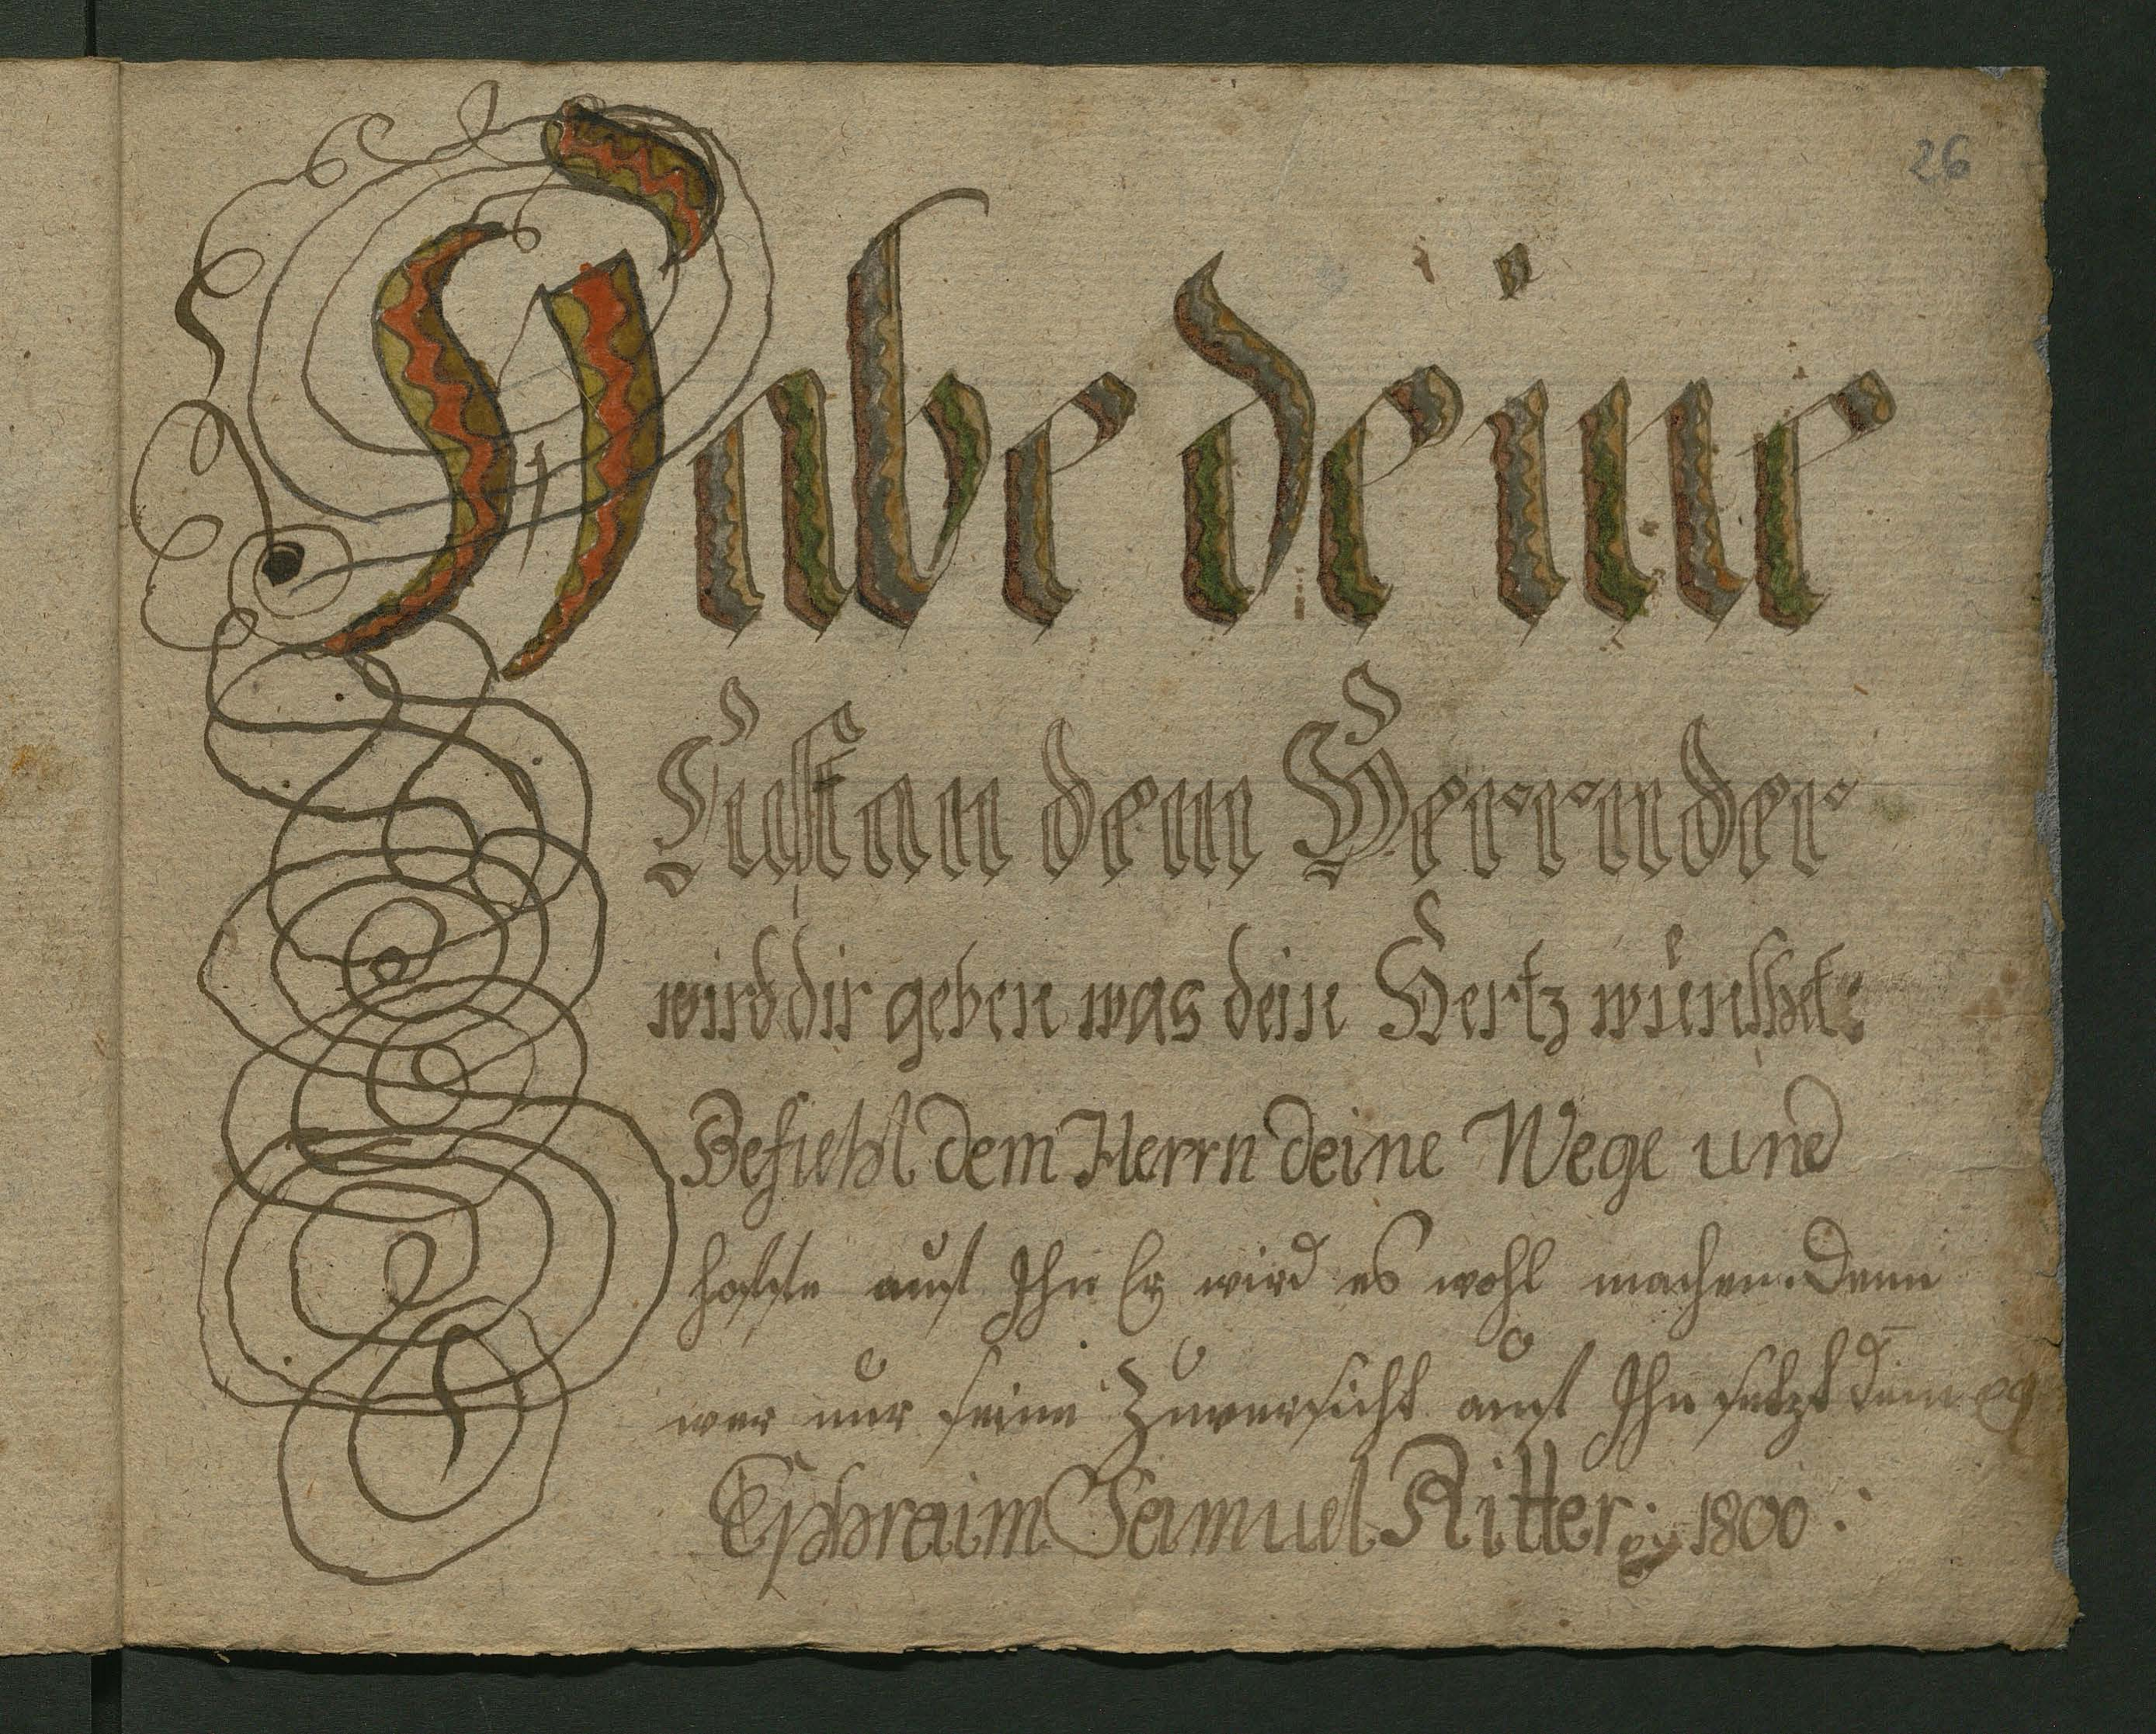 26
Habe deine
Lust an dem Herrn der
wird dir geben was dein Hertz wünschet:
Befiehl dem Herrn deine Wege und
hoffe auf Ihn Er wird es wohl machen. Denn
wer nur seine Zuversicht auf Ihn setzt dem
Ephraim Samuel Ritter: 1800: